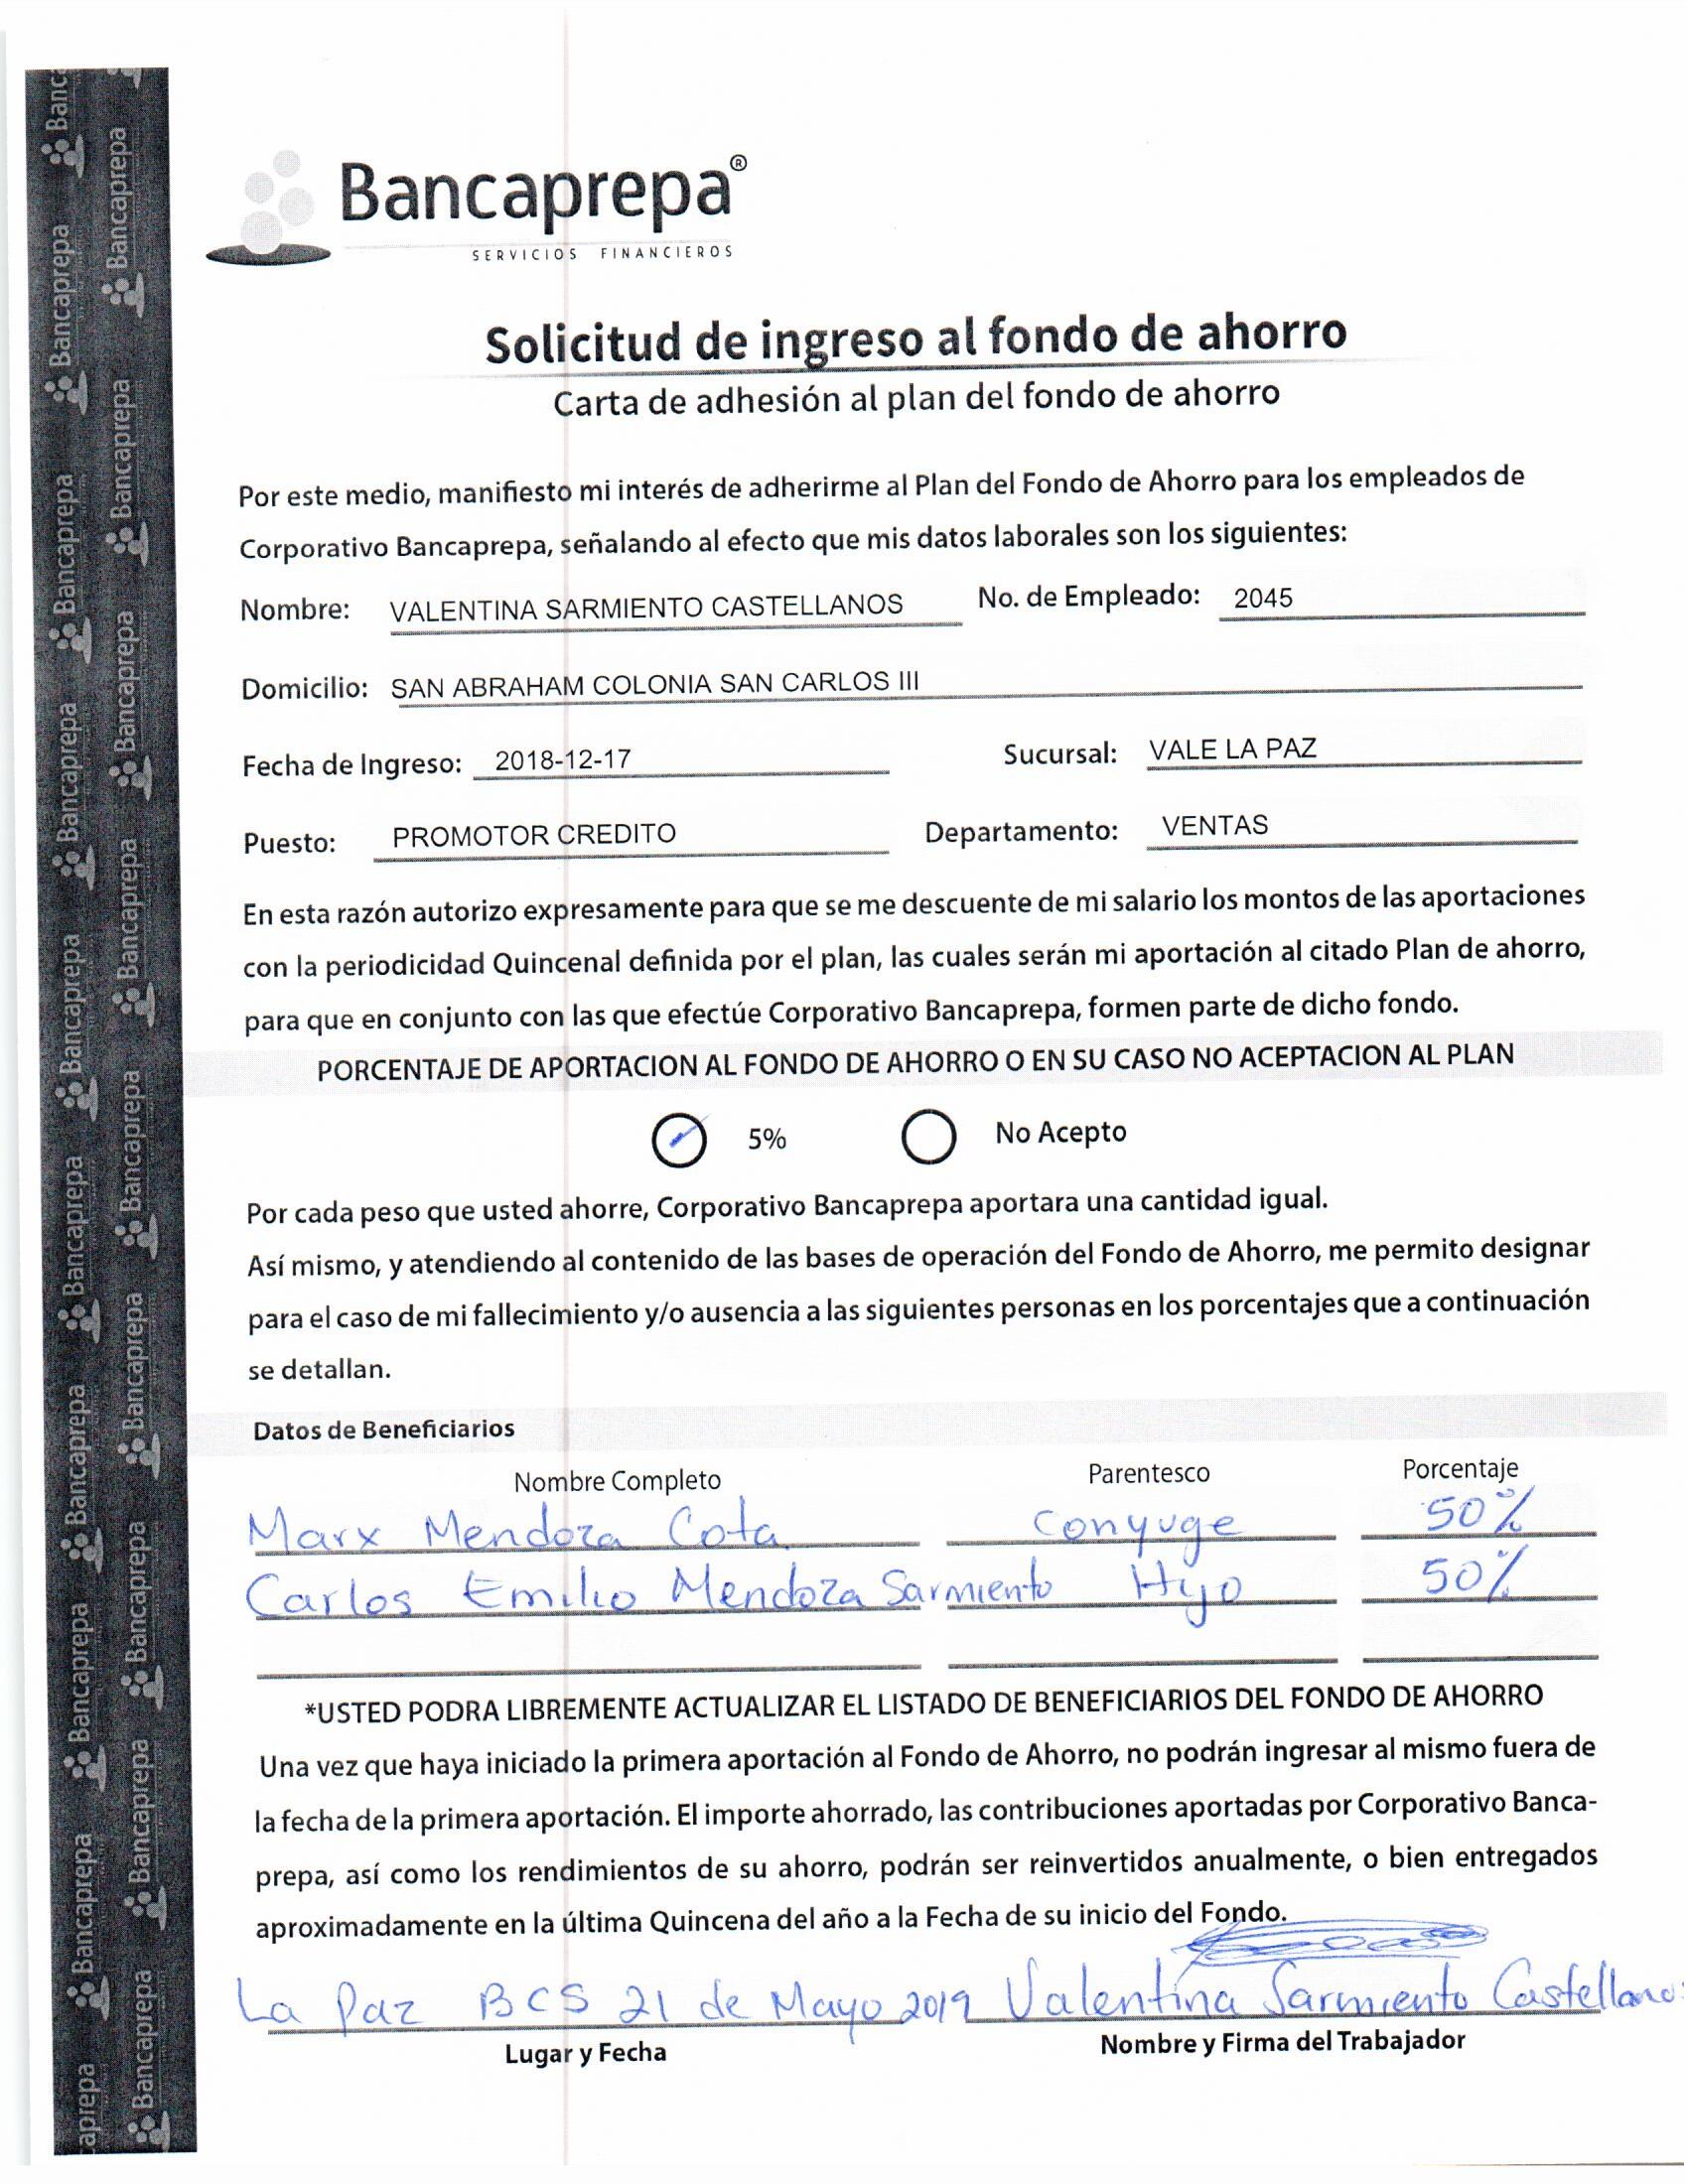 Bancaprepa®
SERVICIOS FINANCIEROS
Solicitud de ingreso al fondo de ahorro
Carta de adhesión al plan del fondo de ahorro
Por este medo, manifiesto mi interés de adherirme al Plan del Fondo de Ahorro para los empleados de
Corporativo Bancaprepa, señalando al efecto que mis datos laborales son los siguientes:
Nombre: VALENTINA SARMIENTO CASTELLANOS No. de Empleado: 2045
Domicilio: SAN ABRAHAM COLONIA SAN CARLOS III
Fecha de Ingreso: 2018-12-17 Sucursal: VALE LA PAZ
Puesto: PROMOTOR CREDITO Departamento: VENTAS
En esta razón autorizo expresamente para que se me descuente de mi salario los montos de las aportaciones
con la periodicidad Quincenal definida por el plan, las cuales serán mi aportación al citado Plan de ahorro,
para que en conjunto con las que efectúe Corporativo Bancaprepa, formen parte de dicho fondo.
PORCENTAJE DE APORTACION AL FONDO DE AHORRO O EN SU CASO NO ACEPTACION AL PLAN
5% No Acepto
Por cada peso que usted ahorre, Corporativo Bancaprepa aportara una cantidad igual.
Así mismo, y atendiendo al contenido de las bases de operación del Fondo de Ahorro, me permito designar
para el caso de mi fallecimiento y/o ausencia a las siguientes personas en los porcentajes que a continuación
se detallan.
Datos de Beneficiarios
Nombre Completo Parentesco Porcentaje
Marx Mendoza Cota Conyuge 50%
Carlos Emilio Mendoza Sarmiento Hijo 50%
*USTED PODRA LIBREMENTE ACTUALIZAR EL LISTADO DE BENEFICIARIOS DEL FONDO DE AHORRO
Una vez que haya iniciado la primera aportación al Fondo de Ahorro, no podrán ingresar al mismo fuera de
la fecha de la primera aportación. El importe ahorrado, las contribuciones aportadas por Corporativo Banca-
prepa, así como los rendimientos de su ahorro, podrán ser reinvertidos anualmente, o bien entregados
aproximadamente en la última Quincena del año a la Fecha de su inicio del Fondo.
La Paz BCS 21 de Mayo 2019 Valentina Sarmiento Castellanos
Lugar y Fecha Nombre y Firma del Trabajador